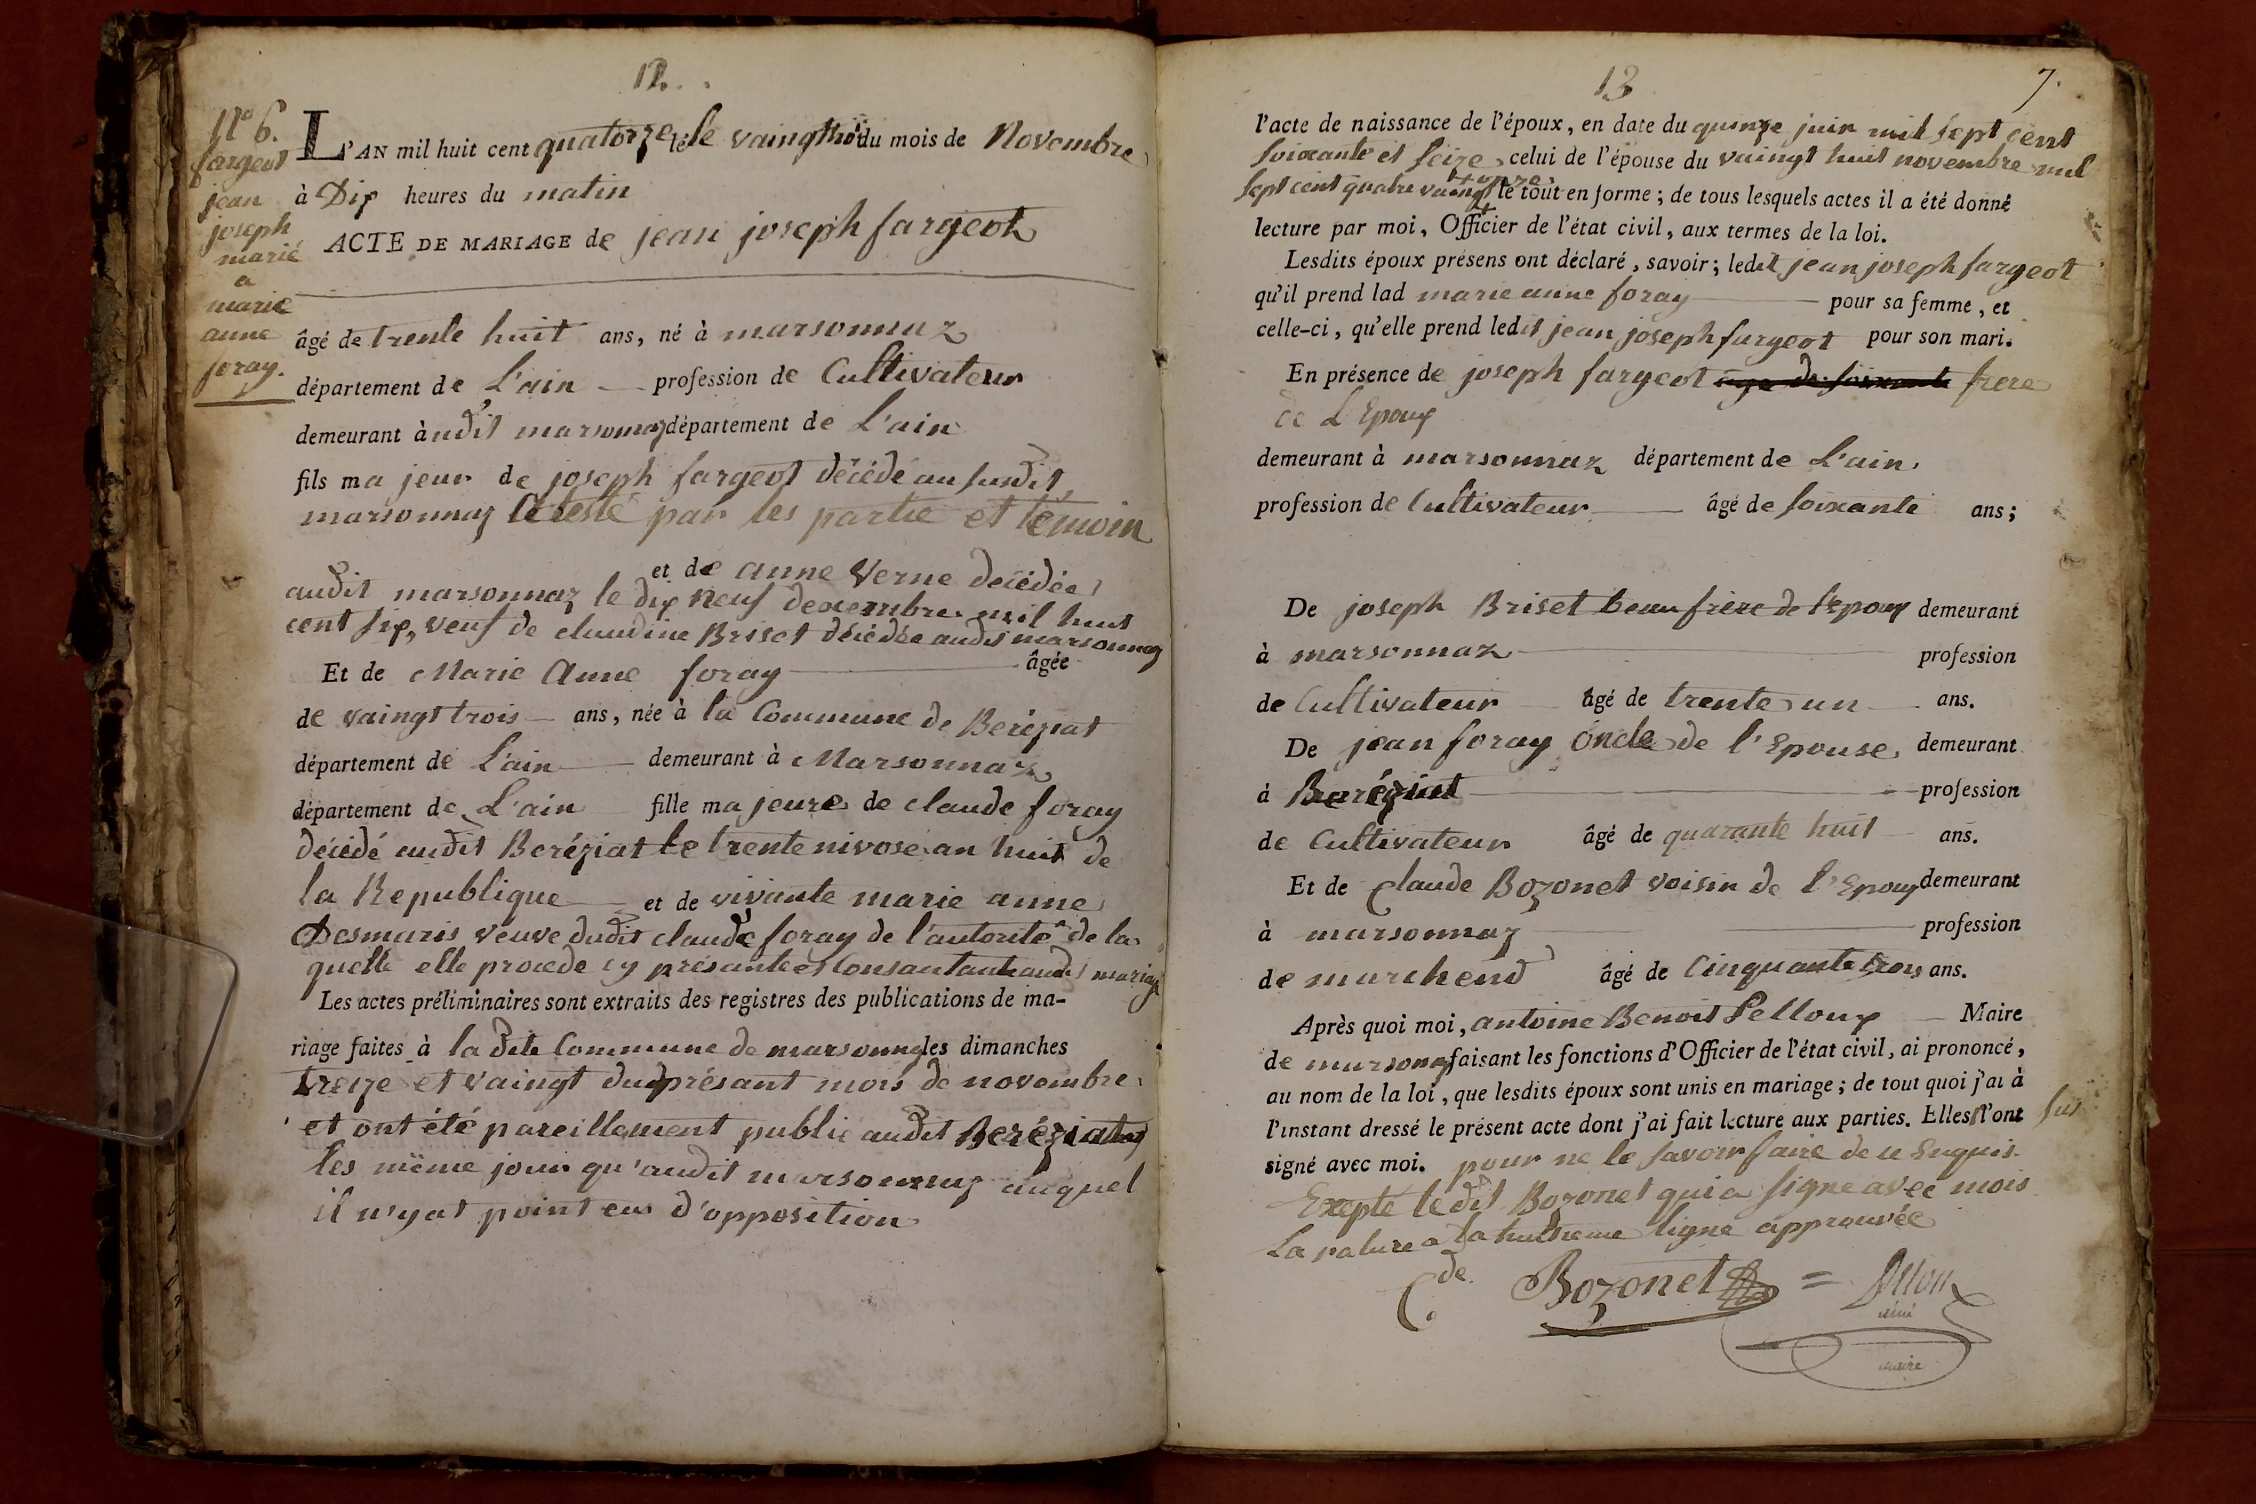 12.
N° 6.
fargeot
jean
joseph
marié
a
marie
anne
foray.
L'AN mil huit cent quatorze le le vaingt trois du mois de Novembre
à Dix heures du matin
ACTE DE MARIAGE de jean joseph fargeot
âgé de trente huit ans, né à marsonnaz
département de L'ain profession de Cultivateur
demeurant à udit marsonnaz département de L'ain
fils ma jeur de joseph fargeot décédé au susdit
marsonnaz par les partie et temoin
et de anne Verne decédée
audit marsonnaz le dix neuf decembre mil huit
cent six, veuf de claudine Briset décédée audit marsonnaz
Et de Marie Anne foray âgée
de vaingt trois ans, née à la Commune de Beréziat
département de L'ain demeurant à Marsonnaz
département de L'ain fille ma jeure de claude foray
décédé audit Beréziat le trente nivose an huit de
la Republique et de vivante marie anne
Desmaris veuve dudit claude foray de l'autorité de la
quelle elle procede cy présante et Consantant audit mariage
Les actes préliminaires sont extraits des registres des publications de ma-
riage faites à la dite Commune de marsonnaz les dimanches
treize et vaingt du présant mois de novembre
et ont été pareillement publié audit Beréziat
les même jour qu'audit marsonnaz auquel
il n'y at point eu d'opposition
13
7.
l'acte de naissance de l'époux, en date du quinze juin mil sept cent
soixante et seize celui de l'épouse du vaingt huit novembre mil
+ onze
sept cent quatre vaingt + le tout en forme ; de tous lesquels actes il a été donné
lecture par moi, Officier de l'état civil, aux termes de la loi.
Lesdits époux présens ont déclaré, savoir ; ledit jean joseph fargeot
qu'il prend lad marie anne foray pour sa femme, et
celle-ci, qu'elle prend ledit jean joseph fargeot pour son mari.
En présence de joseph fargeot age de soixante frere
de L'Epoux
demeurant à marsonnaz département de L'ain.
profession de Cultivateur âgé de soixante ans ;
De joseph Briset beau frère de l'Epoux demeurant
à marsonnaz profession
de Cultivateur âgé de trente un ans.
De jean foray oncle de l'Epouse demeurant
à Beréziat profession
de Cultivateur âgé de quarante huit ans.
Et de Claude Bozonet voisin de l'Epoux demeurant
à marsonnaz profession
de marchend âgé de Cinquante trois ans.
Après quoi moi, antoine Benoit Pelloux Maire
de marsonaz faisant les fonctions d'Officier de l'état civil, ai prononcé,
au nom de la loi, que lesdits époux sont unis en mariage ; de tout quoi j'ai à
l'instant dressé le présent acte dont j'ai fait lecture aux parties. Elles n'ont pas
signé avec moi. pour ne le savoir faire de ce Enquis.
Excepté le dit Bozonet qui a signé avec mois
La rature a la huitieme ligne approuvée
C. de Bozonet = Pelloux
maire